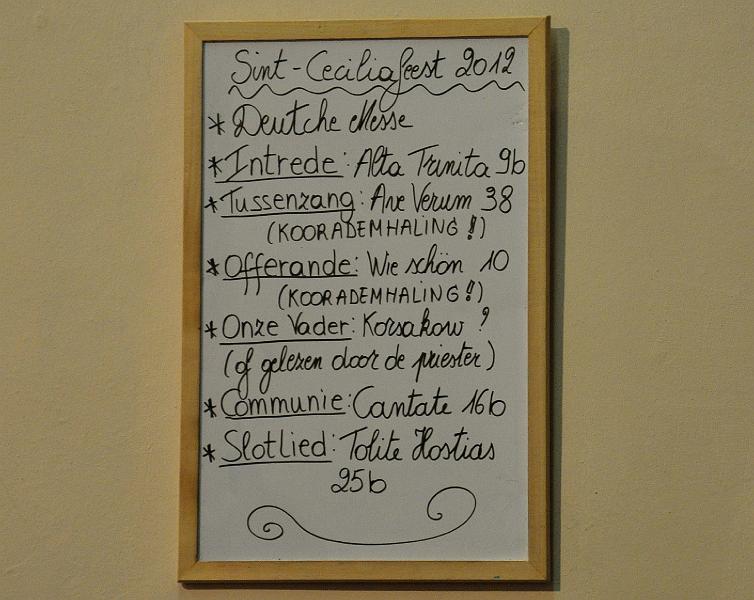 Sint-Ceciliafeest 2012
* Deutche Messe
* Intrede: Alta Trinita 9b
* Tussenzang: Ave Verum 38
(KOORADEMHALING!!)
* Offerande: Wie schön 10
(KOORADEMHALING!!)
* Onze Vader: Korsakow ?
(of gelezen door de priester)
* Communie: Cantate 16b
* Slotlied: Tolite Hostias
25b